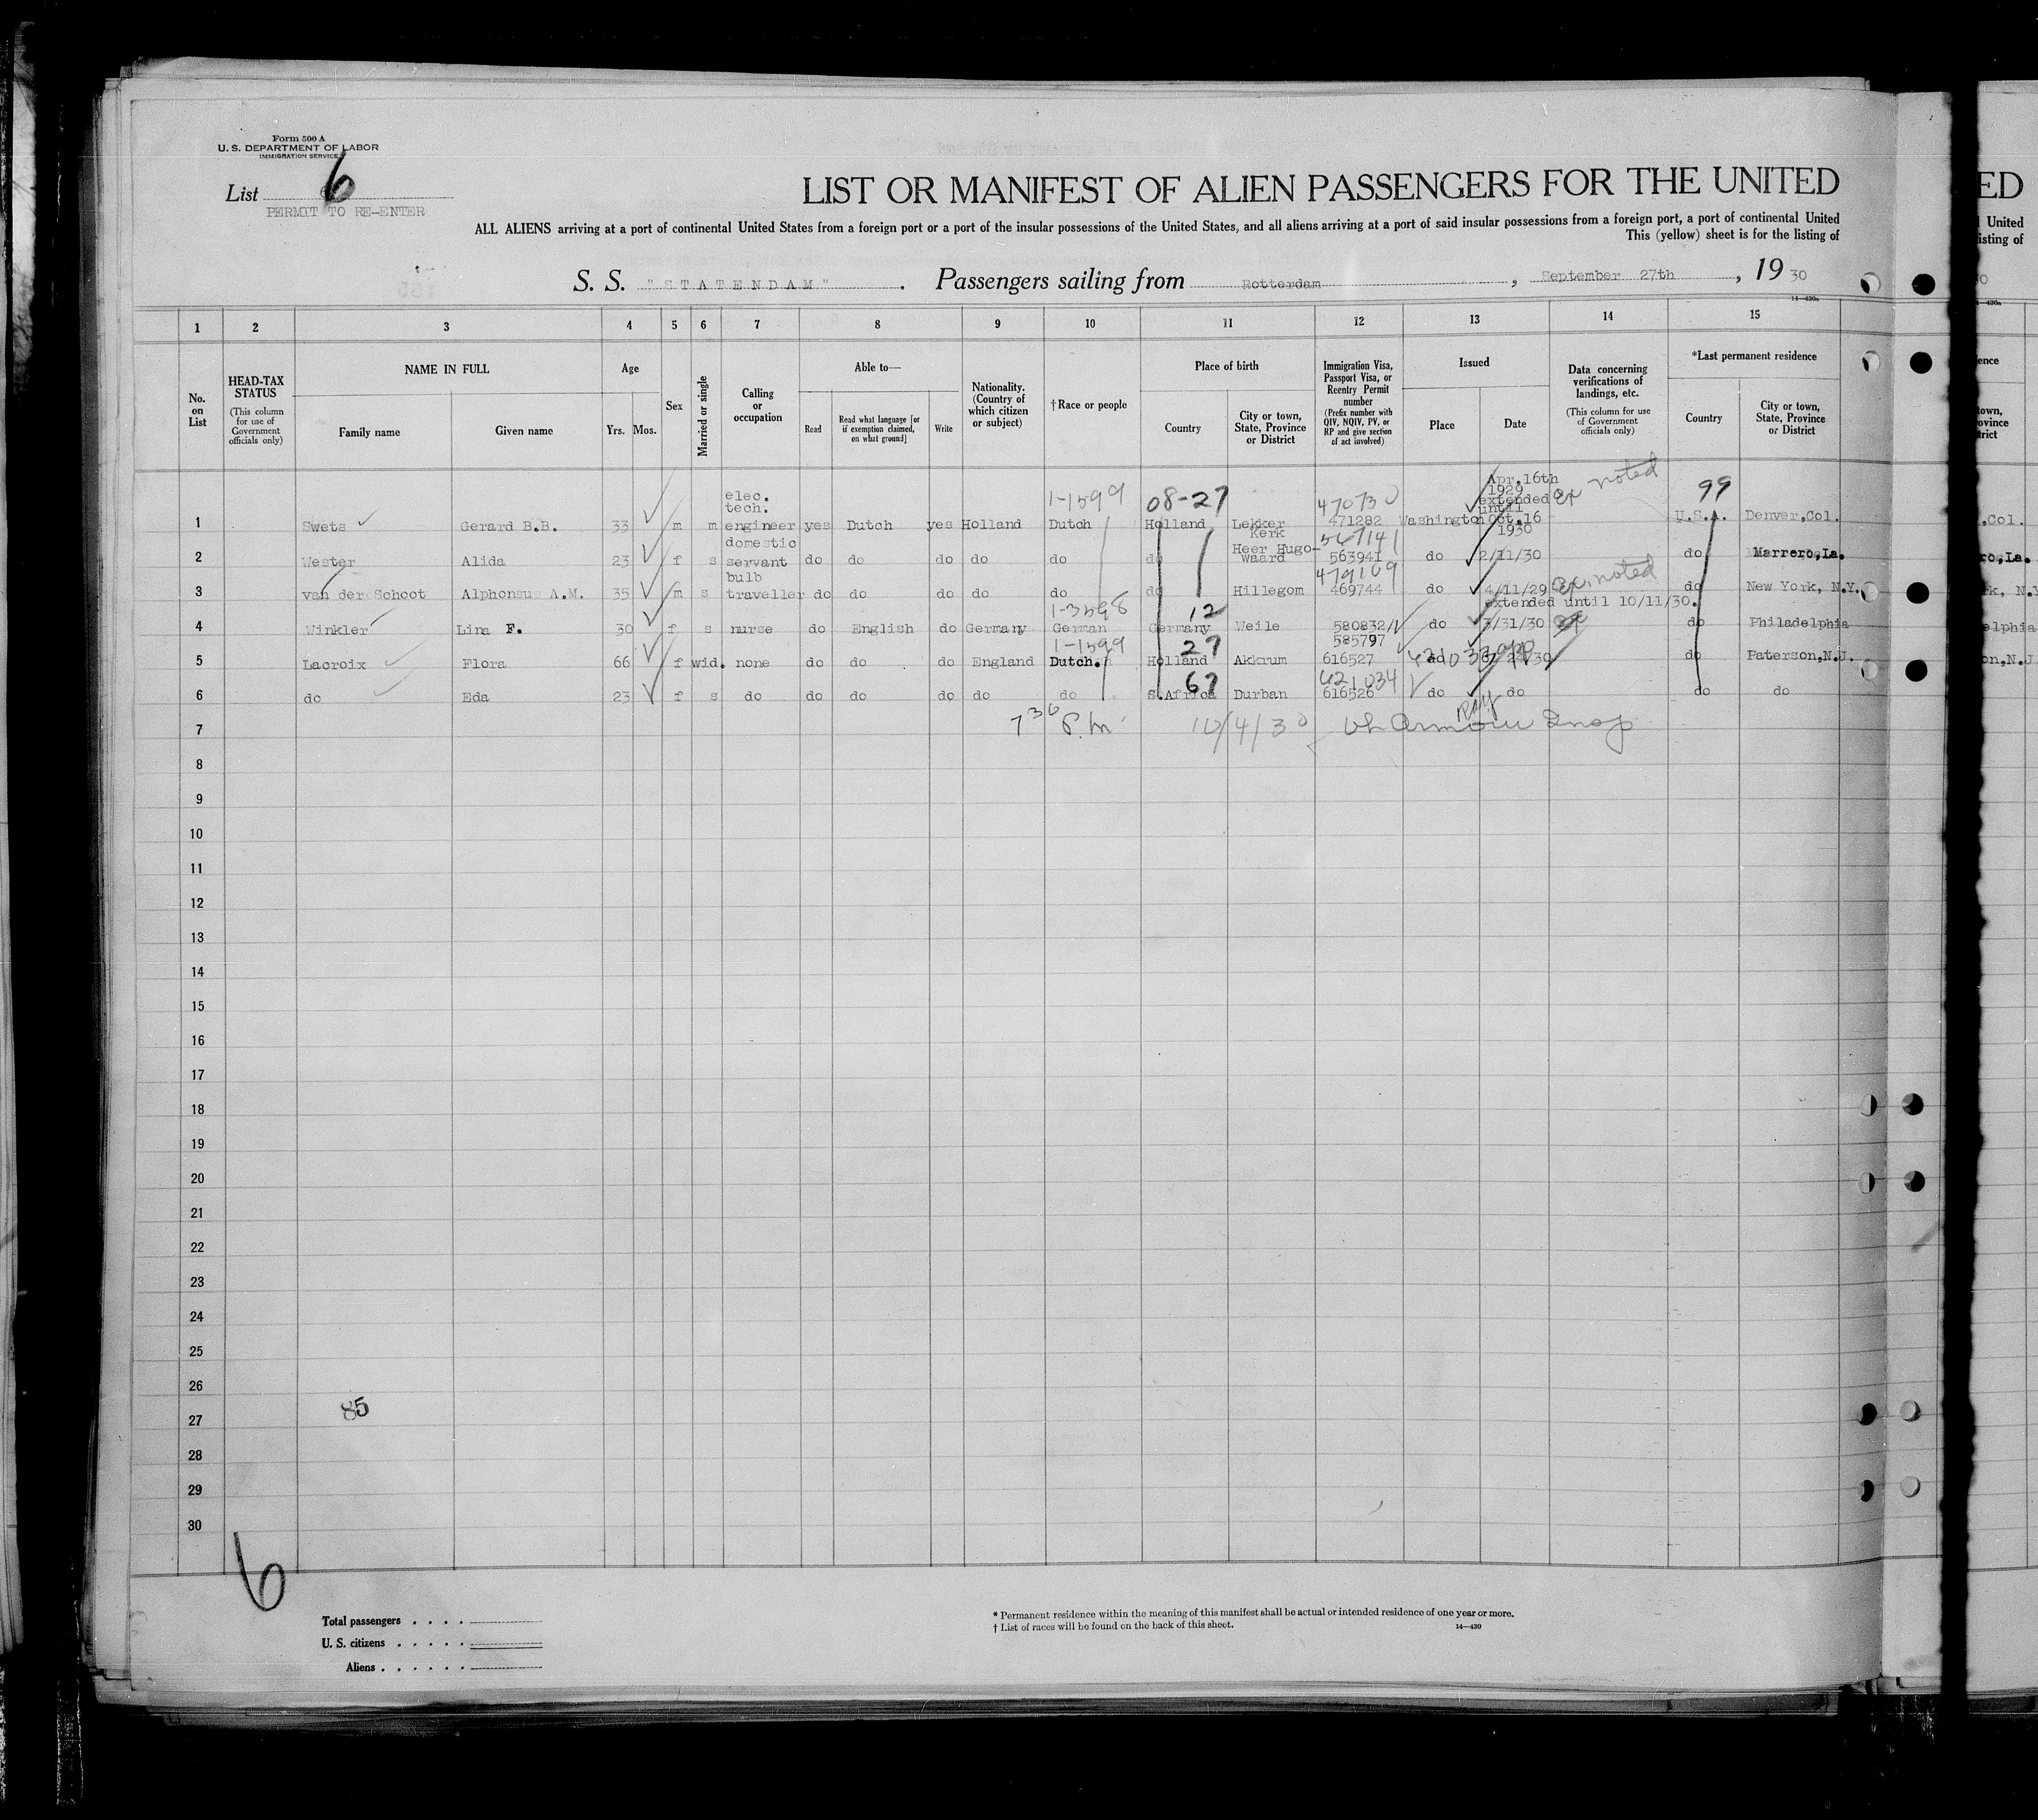 Form 500 A
U. S. DEPARTMENT OF LABOR
IMMIGRATION SERVICE
List 6
PERMIT TO RE-ENTER
LIST OR MANIFEST OF ALIEN PASSENGERS FOR THE UNITED
ALL ALIENS arriving at a port of continental United States from a foreign port or a port of the insular possessions of the United States, and all aliens arriving at a port of said insular possessions from a foreign port, a port of continental United
This (yellow) sheet is for the listing of
S. S. "STATENDAM" . Passengers sailing from Rotterdam , September 27th , 19 30
14—430a
1 2 3 4 5 6 7 8 9 10 11 12 13 14 15
No. on List
HEAD-TAX STATUS (This column for use of Government officials only)
NAME IN FULL
Family name Given name
Age
Yrs. Mos.
Sex
Married or single
Calling or occupation
Able to—
Read Read what language [or if exemption claimed, on what ground] Write
Nationality. (Country of which citizen or subject)
†Race or people
Place of birth
Country City or town, State, Province or District
Immigration Visa, Passport Visa, or Reentry Permit number (Prefix number with QIV, NQIV, PV, or RP and give section of act involved)
Issued
Place Date
Data concerning verifications of landings, etc. (This column for use of Government officials only)
*Last permanent residence
Country City or town, State, Province or District
1-1599 08-27 470730 ex noted 99
1 Swets Gerard B.B. 33 m m elec. tech. engineer yes Dutch yes Holland Dutch Holland Lekker Kerk 471282 Washington Apr.16th 1929 extended until Oct.16 1930 U.S.A. Denver,Col.
567141
2 Wester Alida 23 f s domestic servant do do do do do do Heer Hugo-waard 563941 do 2/11/30 do Marrero,La.
479109
3 van der Schoot Alphonsus A.M. 35 m s bulb traveller do do do do do do Hillegom 469744 do 4/11/29 ex. noted do New York, N.Y.
extended until 10/11/30.
1-3598 12
4 Winkler Lina F. 30 f s nurse do English do Germany German Germany Weile 580832 do 3/31/30 do Philadelphia
1-1599 27 585797
5 Lacroix Flora 66 f wid. none do do do England Dutch. Holland Akkrum 616527 do do Paterson,N.J.
67 621034
6 do Eda 23 f s do do do do do do S.Africa Durban 616526 do do do do
7 7 30 P.m. 10/4/30 Insp
8
9
10
11
12
13
14
15
16
17
18
19
20
21
22
23
24
25
26
27 85
28
29
30
6
Total passengers . . . .
U. S. citizens . . . . .
Aliens . . . . . .
* Permanent residence within the meaning of this manifest shall be actual or intended residence of one year or more.
† List of races will be found on the back of this sheet.
14—430